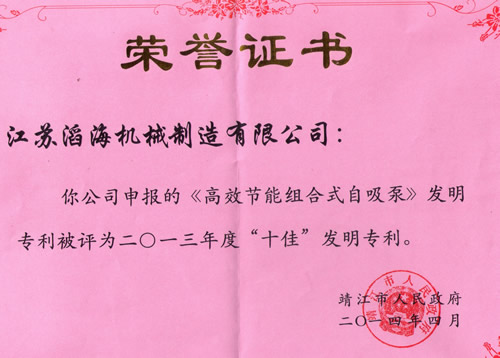 荣誉证书
江苏滔海机械制造有限公司：
你公司申报的《高效节能组合式自吸泵》发明
专利被评为二〇一三年度“十佳”发明专利。
靖江市人民政府
二〇一四年四月
靖江市人民政府